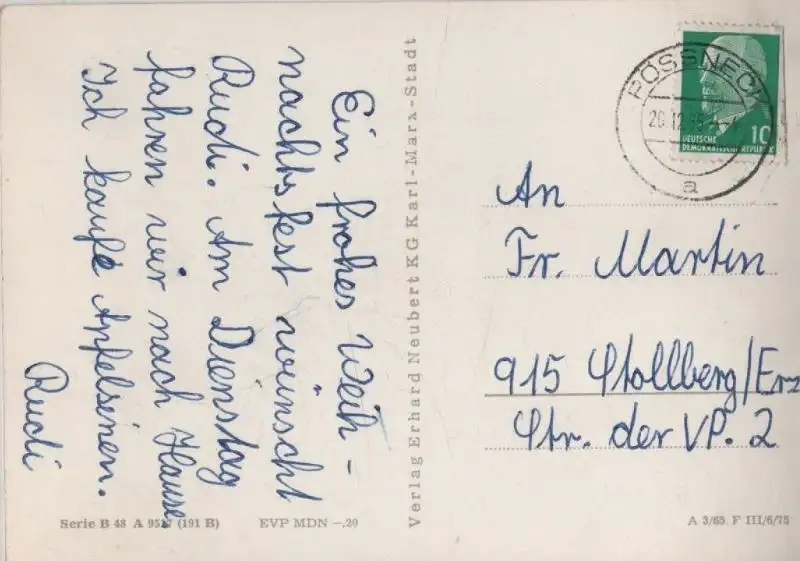 Ein frohes Weih-
nachtsfest wünscht
Rudi. Am Dienstag
fahren wir nach Hause.
Ich kaufe Apfelsinen.
Rudi
Verlag Erhard Neubert KG Karl-Marx-Stadt
PÖSSNECK
20.12.
a
10
DEUTSCHE
DEMOKRATISCHE REPUBLIK
An
Fr. Martin
915 Stollberg/Erz
Str. der VP. 2
Serie B 48 A (191 B)
EVP MDN –,20
A 3/65 F III/6/75